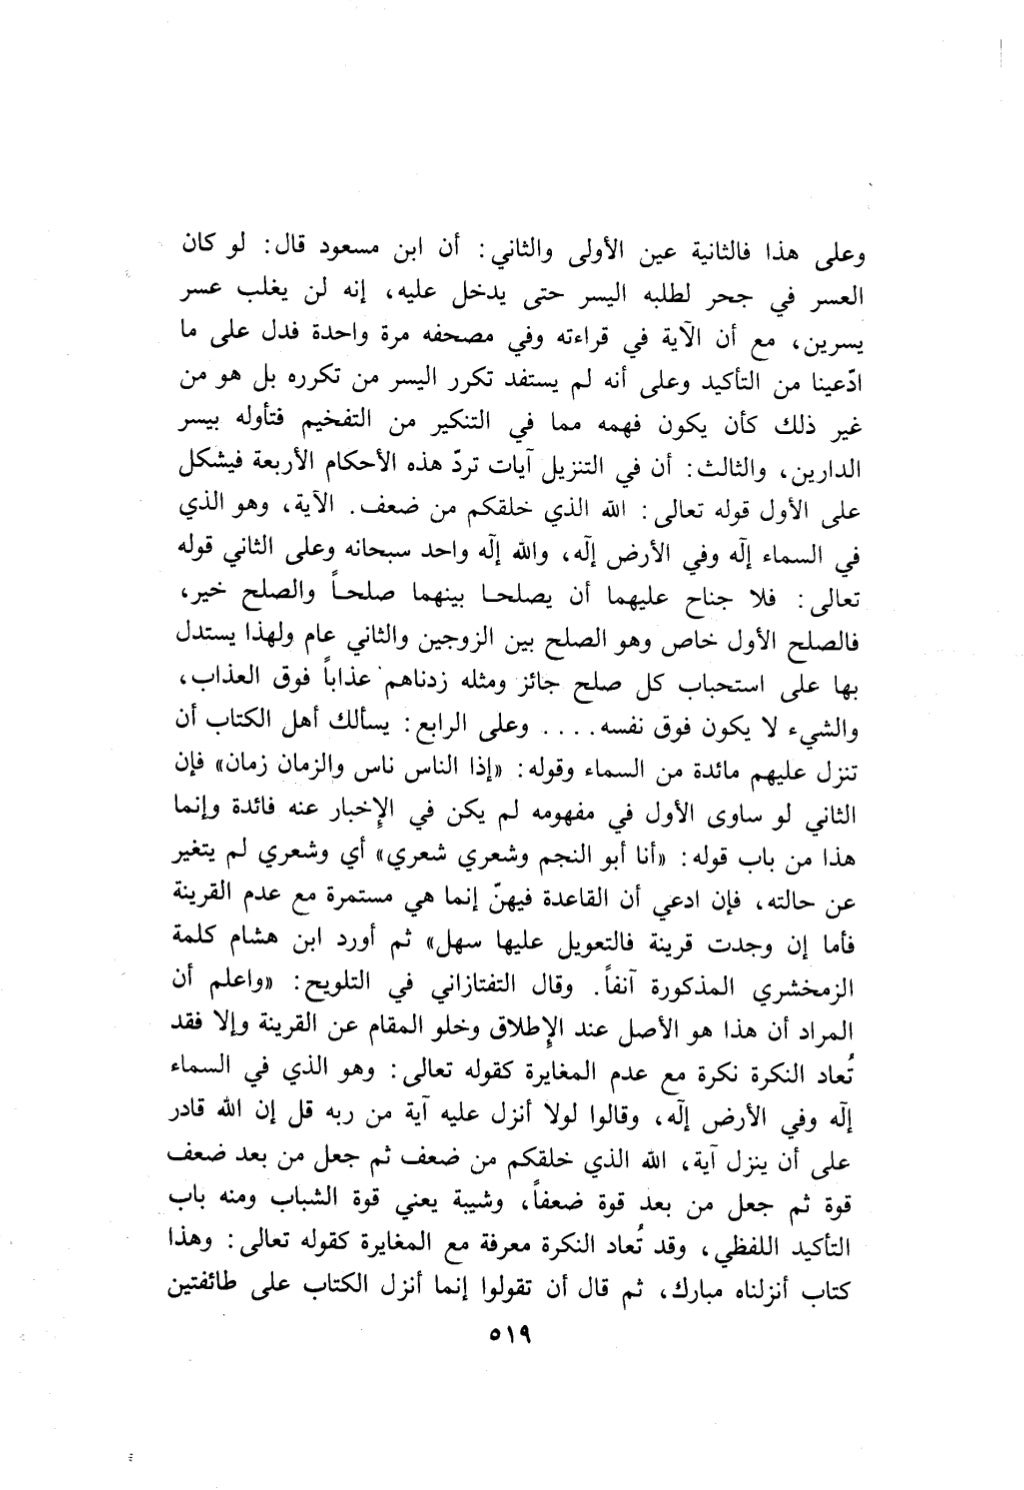 وعلى هذا فالثانية عين الأولى والثاني: أن ابن مسعود قال: لو كان
العسر في جحر لطلبه اليسر حتى يدخل عليه، إنه لن يغلب عسر
يسرين، مع أن الآية في قراءته وفي مصحفه مرة واحدة فدل على ما
ادّعينا من التأكيد وعلى أنه لم يستفد تكرر اليسر من تكرره بل هو من
غير ذلك كأن يكون فهمه مما في التنكير من التفخيم فتأوله بيسر
الدارين، والثالث: أن في التنزيل آيات تردّ هذه الأحكام الأربعة فيشكل
على الأول قوله تعالى: الله الذي خلقكم من ضعف. الآية، وهو الذي
في السماء إلٓه وفي الأرض إلٓه، والله إلٓه واحد سبحانه وعلى الثاني قوله
تعالى: فلا جناح عليهما أن يصلحا بينهما صلحاً والصلح خير،
فالصلح الأول خاص وهو الصلح بين الزوجين والثاني عام ولهذا يستدل
بها على استحباب كل صلح جائز ومثله زدناهم عذاباً فوق العذاب،
والشيء لا يكون فوق نفسه.... وعلى الرابع: يسألك أهل الكتاب أن
تنزل عليهم مائدة من السماء وقوله: «إذا الناس ناس والزمان زمان» فإن
الثاني لو ساوى الأول في مفهومه لم يكن في الإخبار عنه فائدة وإنما
هذا من باب قوله: «أنا أبو النجم وشعري شعري» أي وشعري لم يتغير
عن حالته، فإن ادعي أن القاعدة فيهنّ إنما هي مستمرة مع عدم القرينة
فأما إن وجدت قرينة فالتعويل عليها سهل» ثم أورد ابن هشام كلمة
الزمخشري المذكورة آنفاً. وقال التفتازاني في التلويح: «واعلم أن
المراد أن هذا هو الأصل عند الإطلاق وخلو المقام عن القرينة وإلا فقد
تُعاد النكرة نكرة مع عدم المغايرة كقوله تعالى: وهو الذي في السماء
إلٓه وفي الأرض إلٓه، وقالوا لولا أنزل عليه آية من ربه قل إن الله قادر
على أن ينزل آية، الله الذي خلقكم من ضعف ثم جعل من بعد ضعف
قوة ثم جعل من بعد قوة ضعفاً، وشيبة يعني قوة الشباب ومنه باب
التأكيد اللفظي، وقد تُعاد النكرة معرفة مع المغايرة كقوله تعالى: وهذا
كتاب أنزلناه مبارك، ثم قال أن تقولوا إنما أنزل الكتاب على طائفتين
٥١٩